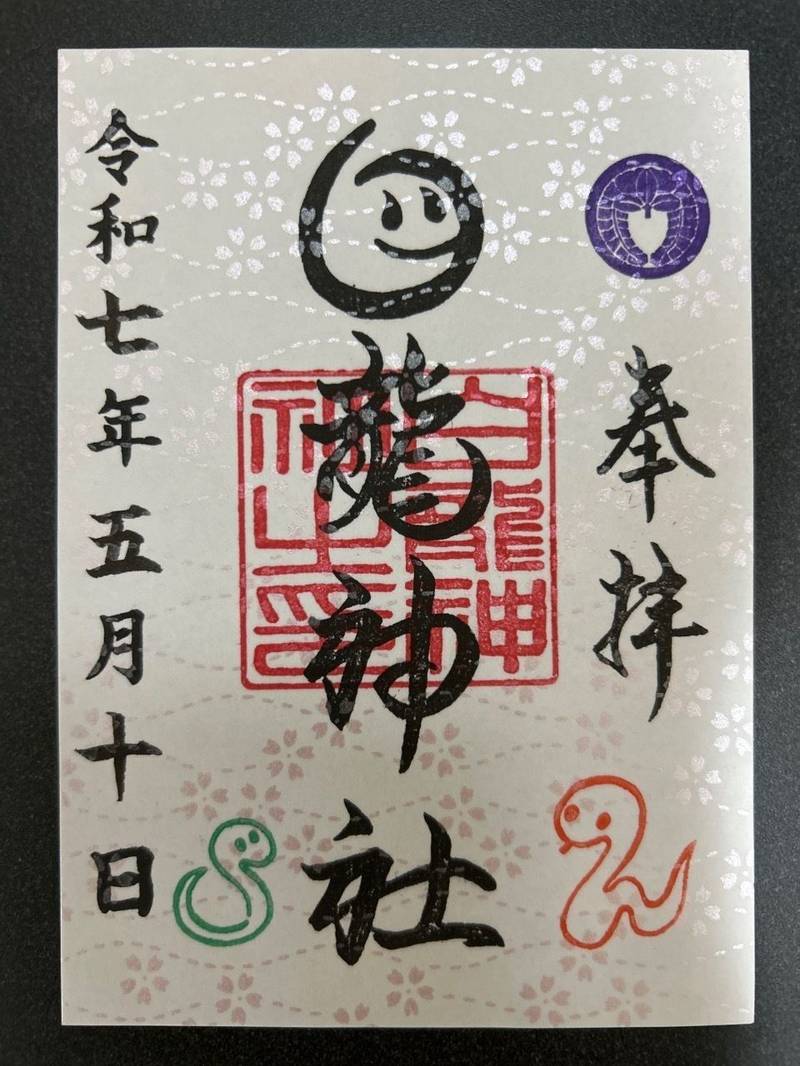 奉拝
白龍神社
白龍神
社之印
令和七年五月十日